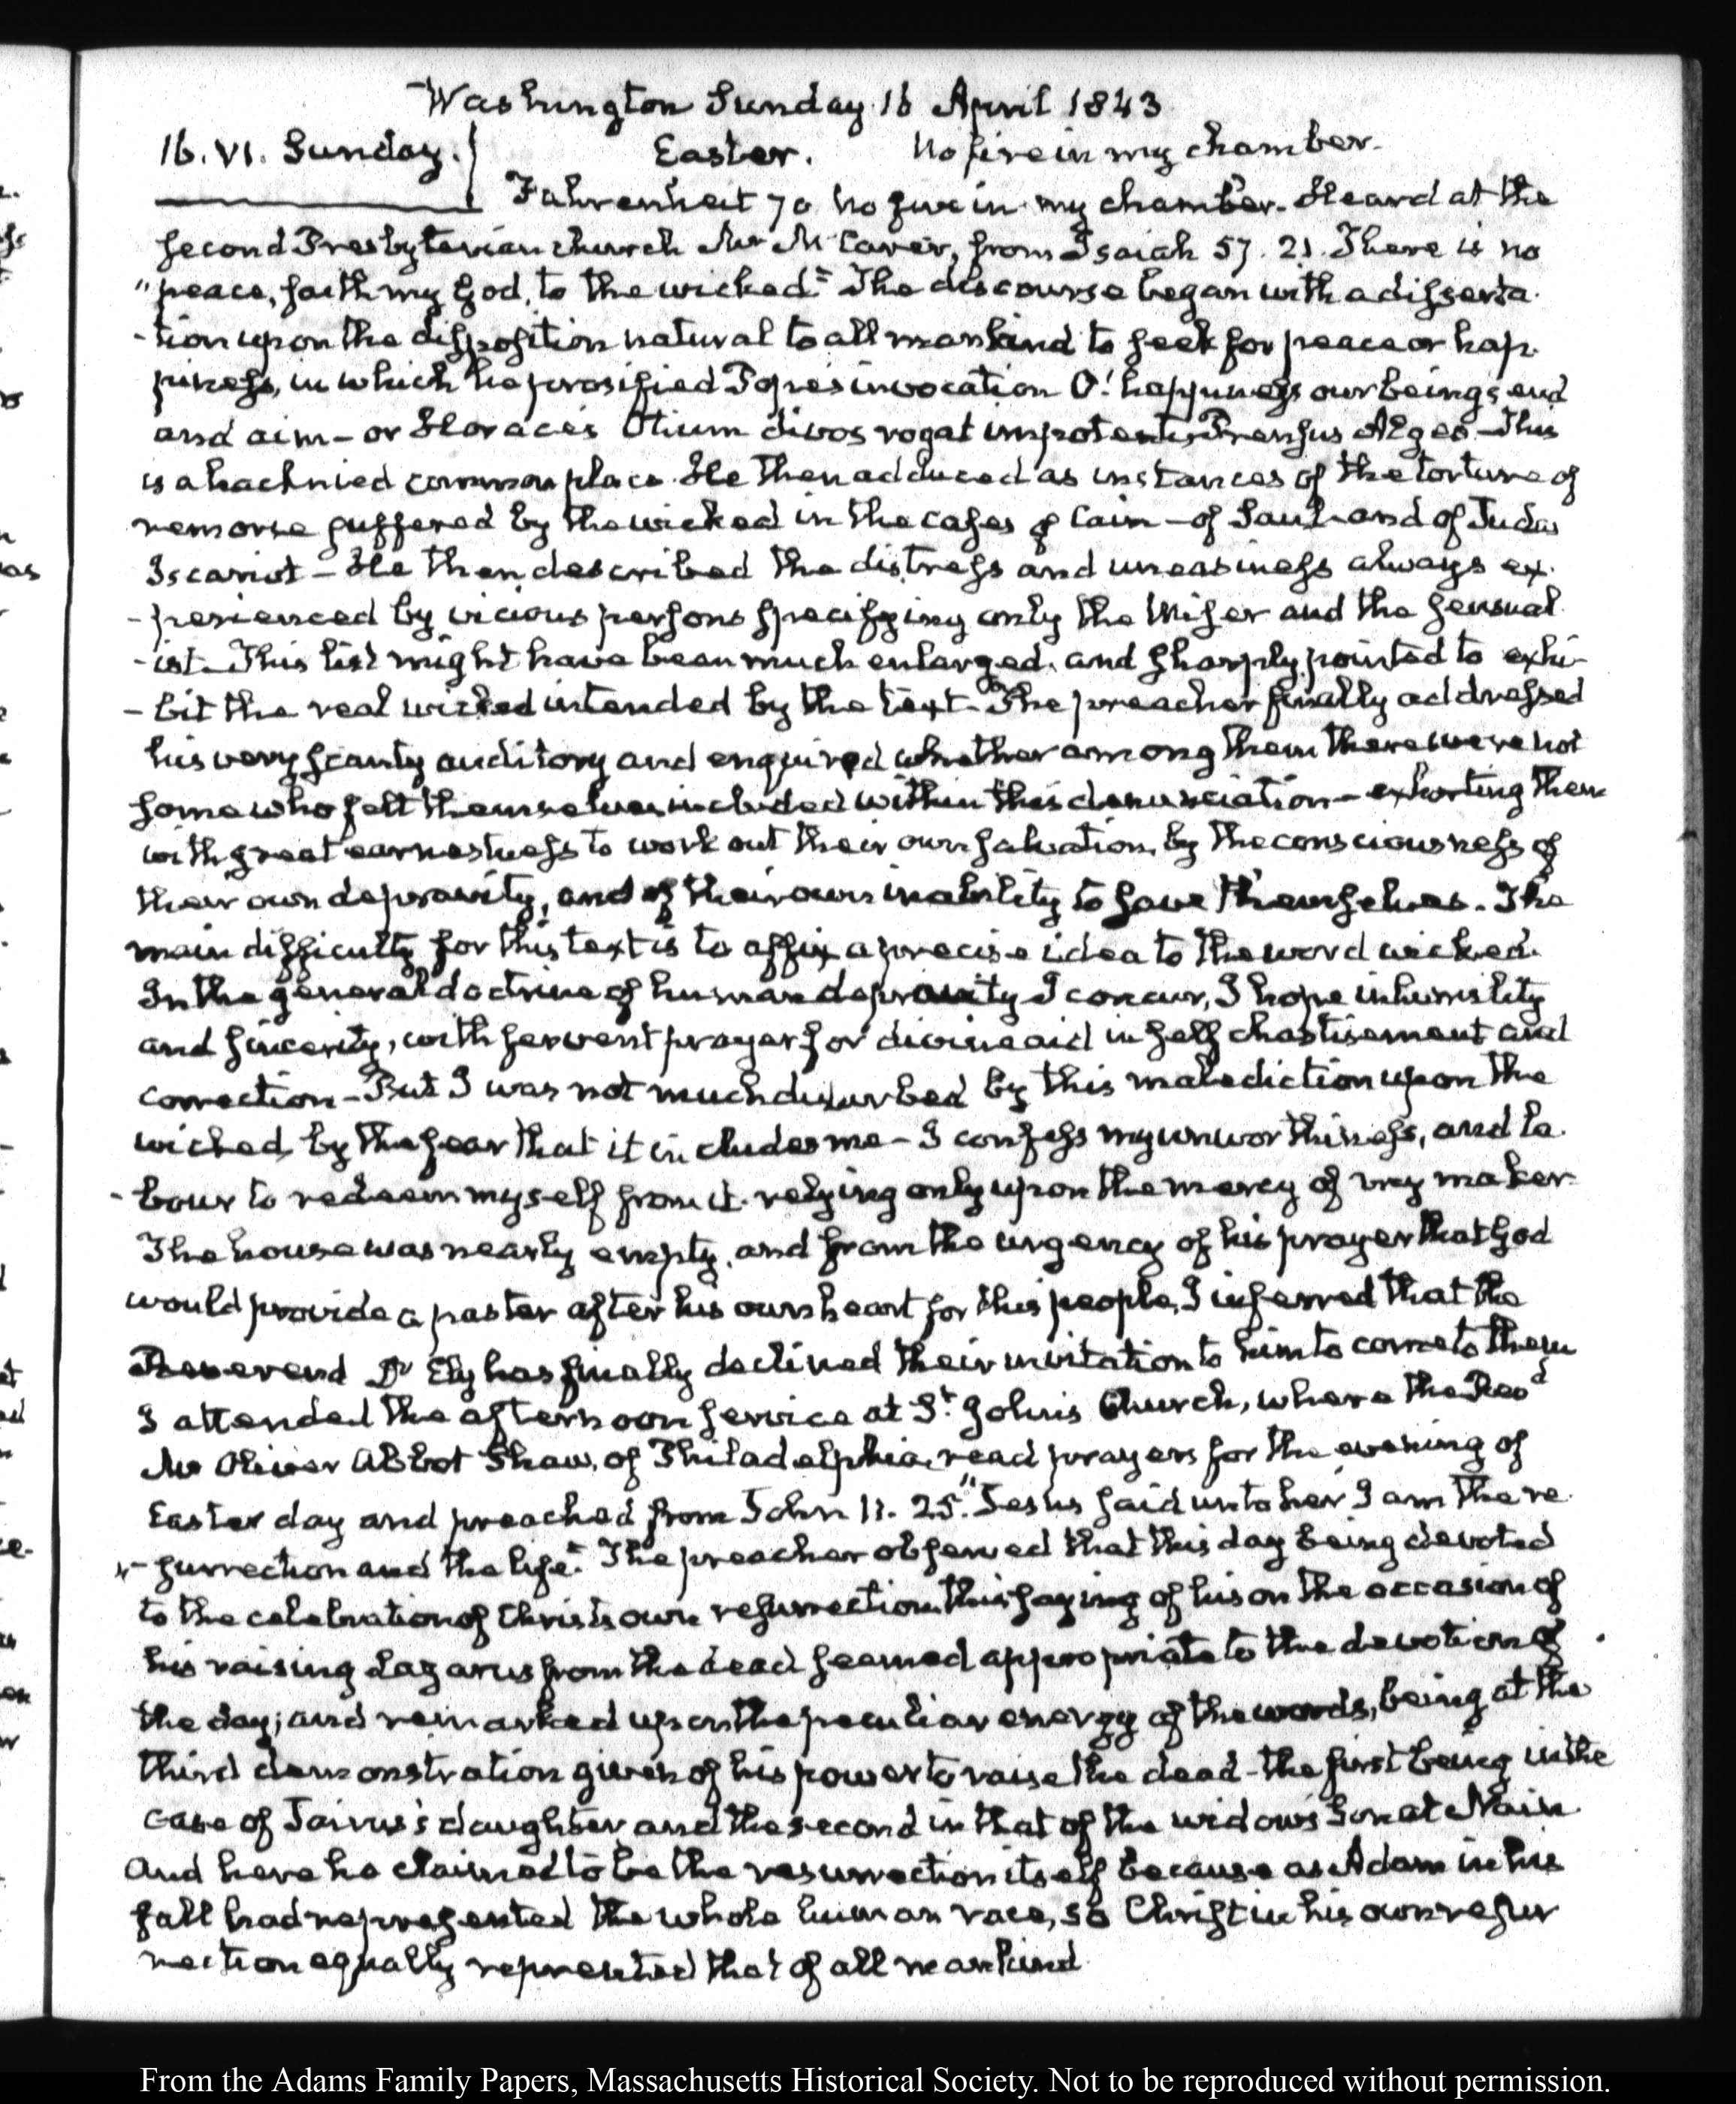 Washington Sunday 16 April 1843
16. VI. Sunday. Easter. No fire in my chamber.
Fahrenheit 70 No fire in my chamber. Heard at the
second Presbyterian church Mr. from Isaiah 57. 21. There is no
"peace, saith my God, to the wicked." The discourse began with a disserta-
-tion upon the disposition natural to all mankind to seek for peace or hap-
piness, in which he prosified Pope's invocation O! happiness our being's end
and aim - or Horace's Otium divos rogat impotenti Prensus Aegeo - This
is a hacknied common place. He then adduced as instances of the torture of
remorse suffered by the wicked in the cases of Cain - of Saul and of Judas
Iscariot - He then described the distress and uneasiness always ex-
-perienced by vicious persons specifying only the Miser and the sensual-
-ist. This list might have been much enlarged, and sharply pointed to exhi-
-bit the real wicked intended by the text - The preacher finally addressed
his very scanty auditory and enquired whether among them there were not
some who felt themselves included within this denunciation - exhorting them
with great earnestness to work out their own salvation, by the consciousness of
their own depravity, and of their own inability to save themselves. The
main difficulty for this text is to affix a precise idea to the word wicked.
In the general doctrine of human depravity I concur, I hope in humility
and sincerity, with fervent prayer for divine aid in self chastisement and
correction - But I was not much disturbed by this malediction upon the
wicked, by the fear that it includes me - I confess my unworthiness, and la-
-bour to redeem myself from it. relying only upon the mercy of my maker
The house was nearly empty, and from the urgency of his prayer that God
would provide a pastor after his own heart for this people, I inferred that the
Reverend Dr Ely has finally declined their invitation to him to come to them
I attended the afternoon service at St. John's Church, where the Revd
Mr Oliver Abbot Shaw, of Philadelphia, read prayers for the evening of
Easter day and preached from John 11. 25. "Jesus said unto her I am the re-
"-surrection and the life." The preacher observed that this day being devoted
to the celebration of Christ's own resurrection, this saying of his on the occasion of
his raising Lazarus from the dead seemed appropriate to the devotions of
the day; and remarked upon the peculiar energy of the words, being at the
third demonstration given of his power to raise the dead - the first being in the
case of Jairus's daughter, and the second in that of the widow's son at Nain.
And here he claimed to be the resurrection itself because as Adam in his
fall had represented the whole human race, so Christ in his own resur
rection equally represented that of all mankind
From the Adams Family Papers, Massachusetts Historical Society. Not to be reproduced without permission.